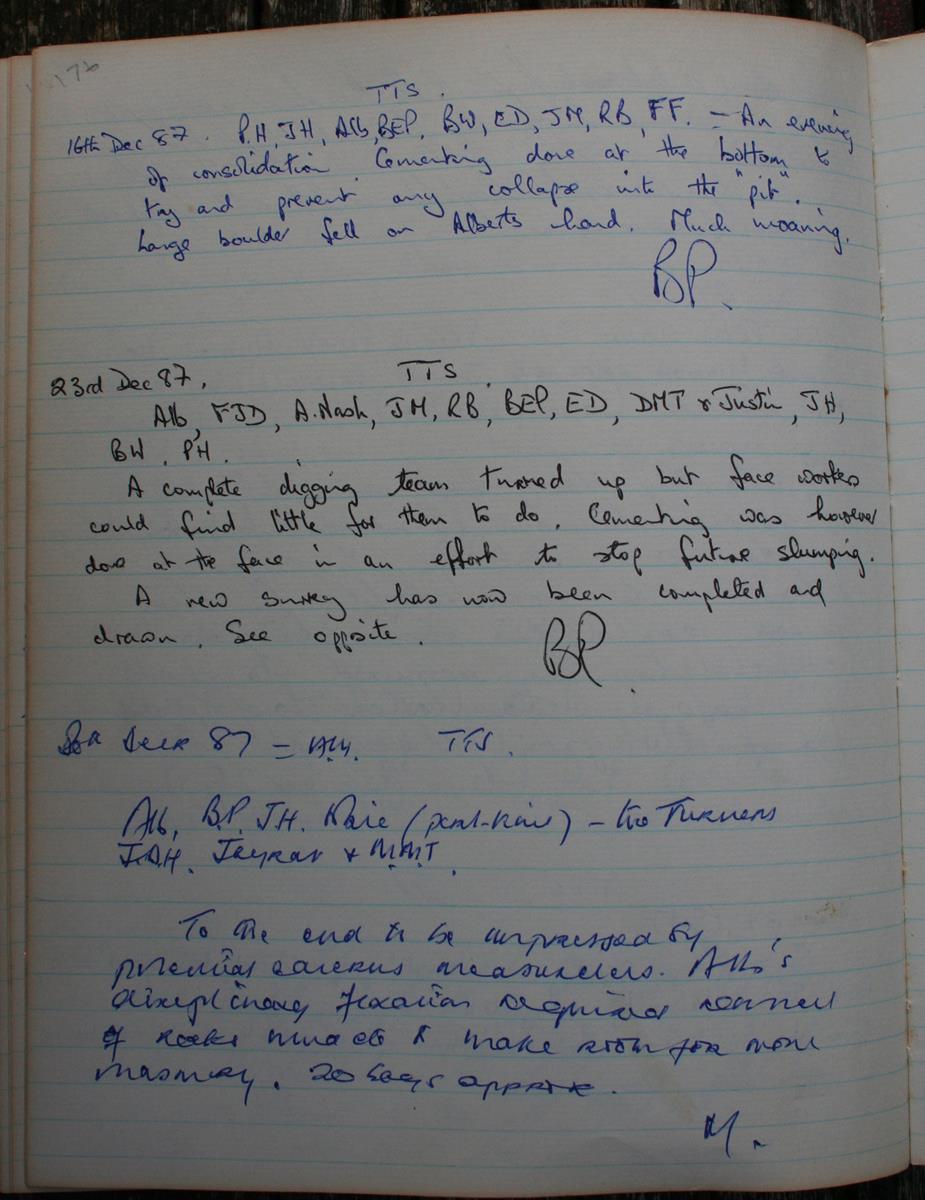 176
TTS.
16th Dec 87. P.H, JH, Alb, BEP, BW, ED, JM, RB, FF. - An evening
of consolidation. Cementing done at the bottom to
try and prevent any collapse into the "pit".
Large boulder fell on Alberts hand. Much moaning.
BP.
23rd Dec 87. TTS.
Alb, FJD, A. Nash, JM, RB, BEP, ED, DMT & Justin, JH,
BW. PH.
A complete digging team turned up but face workers
could find little for them to do. Cementing was however
done at the face in an effort to stop future slumping.
A new survey has now been completed and
drawn. See opposite.
BP.
87 = TTS.
Alb, B.P. JH. - two Turners
J.A.H. & M.M.T.
To the end to be impressed by
potential measurers. Alb's
disciplinary required removal
of rocks & make room for more
masonry. 20 bags approx.
M.